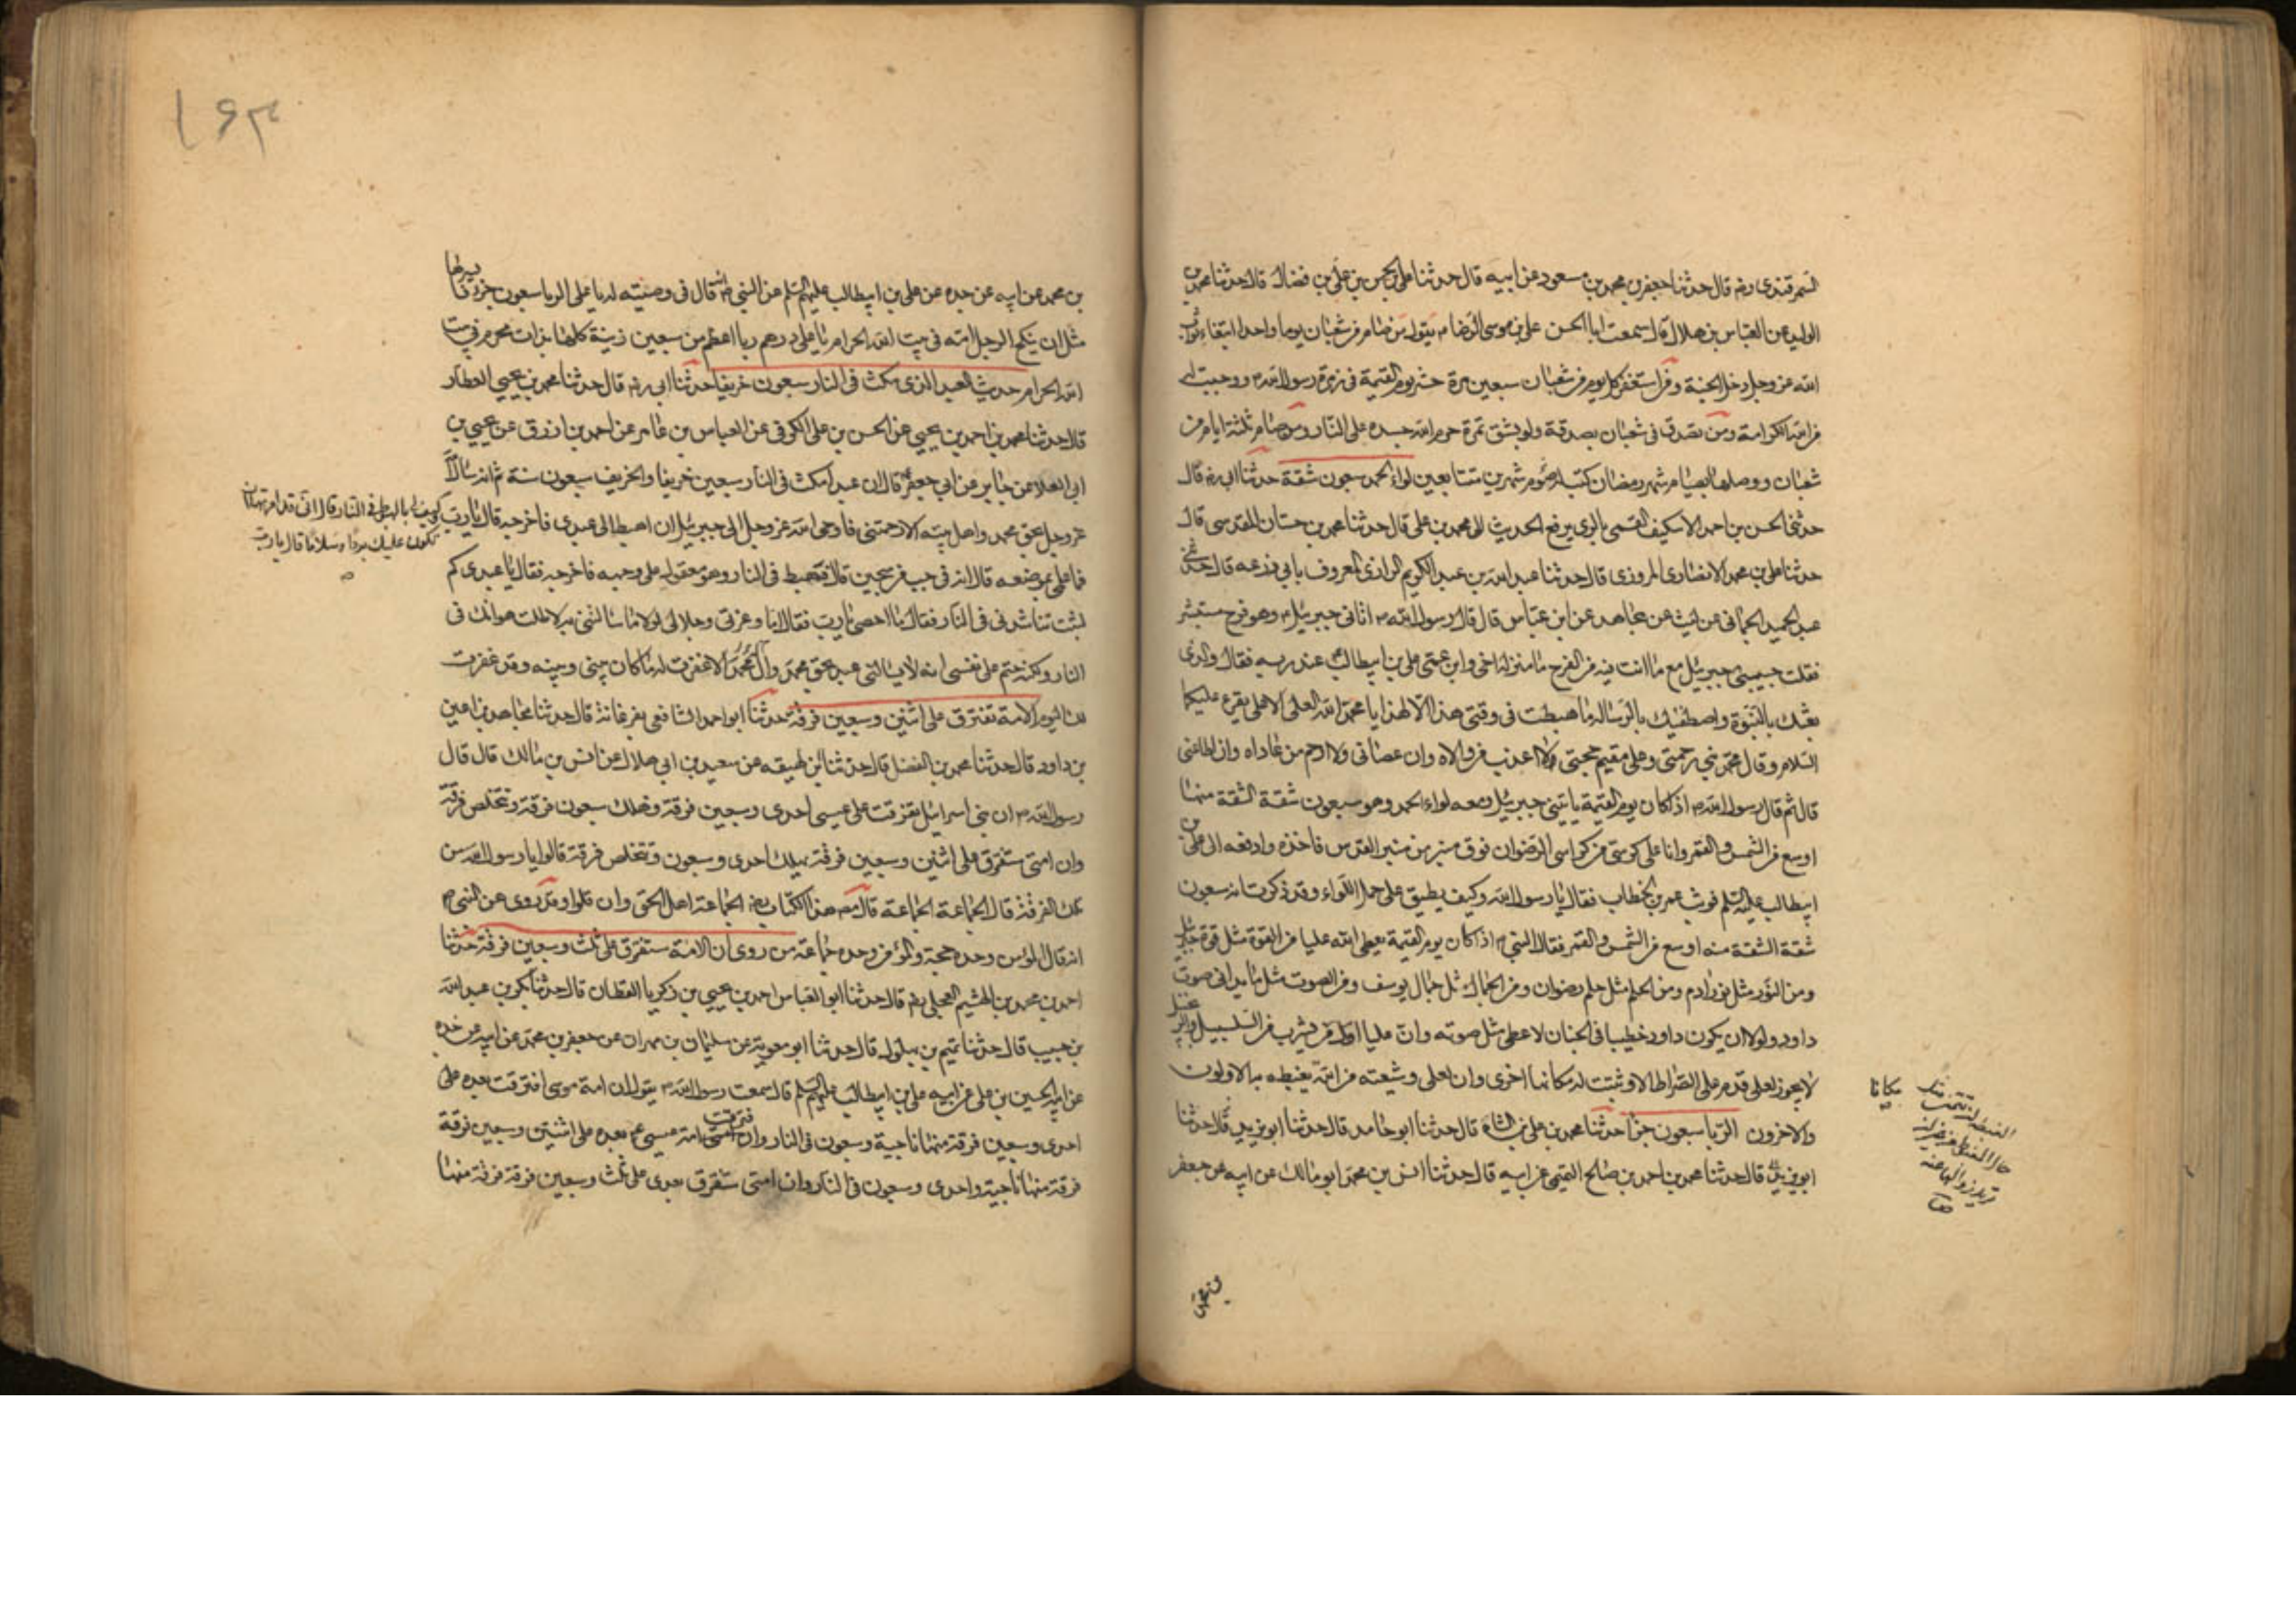 السمرقندی رضه قال حدثنا جعفر بن محمد بن مسعود عن ابیه قال حدثنا علی بن الحسن بن علی بن فضال قال حدثنا محمد بن
الولید عن العباس بن هلال قال سمعت ابا الحسن علی بن موسی الرضا م یقول من صام من شعبان یوما واحدا ابتغاء ثواب
الله عز وجل دخل الجنة ومن استغفر کل یوم من شعبان سبعین مرة حشر یوم القیمة فی زمرة رسول الله ص ووجبت له
من الله الکرامة ومن تصدق فی شعبان بصدقة ولو بشق تمرة حرم الله جسده علی النار ومن صام ثلثة ایام من
شعبان ووصلها بصیام شهر رمضان کتب له صوم شهرین متتابعین لواء الحمد سبعون شقة حدثنا ابی رضه قال
حدثنی الحسن بن احمد الاسکیف القمی بالری یرفع الحدیث الی محمد بن علی قال حدثنا محمد بن حسان القدسی قال
حدثنا علی بن محمد الانصاری المروزی قال حدثنا عبد الله بن عبد الکریم الرازی المعروف بابی زرعه قال حدثنی
عبد الحمید الحمانی عن لیث عن مجاهد عن ابن عباس قال قال رسول الله ص اتانی جبرئیل م وهو فرح مستبشر
فقلت حبیبی جبرئیل مع ما انت فیه من الفرح ما منزلة اخی وابن عمی علی بن ابیطالب عند ربه فقال والذی
بعثک بالنبوة واصطفیک بالرساله ما هبطت فی وقتی هذا الا لهذا یا محمد الله العلی الاعلی یقرء علیکما
السلام وقال محمد نبی رحمتی وعلی مقیم حجتی لا اعذب من والاه وان عصانی ولا ارحم من عاداه وان اطاعنی
قال ثم قال رسول الله ص اذا کان یوم القیمة یاتینی جبرئیل ومعه لواء الحمد وهو سبعون شقة الشقة منها
اوسع من الشمس والقمر وانا علی کرسی من کراسی الرضوان فوق منبر من منبر القدس فاخذه وادفعه الی علی بن
ابیطالب علیه السلم فوثب عمر بن الخطاب فقال یا رسول الله وکیف یطیق علی حمل اللواء وقد ذکرت انه سبعون
شقة الشقة منه اوسع من الشمس والقمر فقال النبی ص اذا کان یوم القیمة یعطی الله علیا من القوة مثل قوة جبرئیل
ومن النور مثل نور ادم ومن الحلم مثل حلم رضوان ومن الجمال مثل جمال یوسف ومن الصوت مثل ما یدانی صوت
داود ولولا ان یکون داود خطیبا فی الجنان لاعطی مثل صوته وان علیا اول من یشرب من السلسبیل والزنجبیل
لا یجوز لعلی قدم علی الصراط الا وثبتت له مکانها اخری وان لعلی وشیعته من الله یغبطه به الاولون
والاخرون الربا سبعون جزأ حدثنا محمد بن علی بن الشاه قال حدثنا ابو حامد قال حدثنا ابو یزید قال حدثنا
ابو یزید قال حدثنا محمد بن احمد بن صالح التمیمی عن ابیه قال حدثنا انس بن محمد ابو مالک عن ابیه عن جعفر
مکانا
بن محمد
۱۶۳
بن محمد عن ابیه عن جده عن علی بن ابیطالب علیهم السلم عن النبی ص انه قال فی وصیته له یا علی الربا سبعون جزء فایسرها
مثل ان ینکح الرجل امه فی بیت الله الحرام یا علی درهم ربا اعظم من سبعین زنیة کلها بذات محرم فی بیت
الله الحرام حدیث العبد الذی مکث فی النار سبعون خریفا حدثنا ابی رضه قال حدثنا محمد بن یحیی العطار
قال حدثنا محمد بن احمد بن یحیی عن الحسن بن علی الکوفی عن العباس بن عامر عن احمد بن ارزق عن یحیی بن
ابی العلاء عن جابر عن ابی جعفر قال ان عبدا مکث فی النار سبعین خریفا والخریف سبعون سنة ثم انه سال الله
عز وجل بحق محمد واهل بیته لا رحمتنی فاوحی الله عز وجل الی جبرئیل ان اهبط الی عبدی فاخرجه قال یا رب
کیف لی بالهبوط فی النار قال انی قد امرتها ان
تکون علیک بردا وسلاما قال یا رب
فما علمی بموضعه قال انه فی جب من سجین قال فهبط فی النار وهو معقول علی وجهه فاخرجه فقال یا عبدی کم
لبثت تناشدنی فی النار فقال ما احصی یا رب فقال اما وعزتی وجلالی لولا ما سالتنی به لاطلت هوانک فی
النار ولکنه حتم علی نفسی انه لا یسالنی عبد بحق محمد وآل محمد الا غفرت له ما کان بینی وبینه وقد غفرت
لک الیوم الامة تفترق علی اثنین وسبعین فرقة حدثنا ابو احمد الشافعی بفرغانة قال حدثنا مجاهد بن اعین
بن داود قال حدثنا محمد بن الفضل قال حدثنا ابن لهیعه عن سعید بن ابی هلال عن انس بن مالک قال قال
رسول الله ص ان بنی اسرائیل تفرقت علی عیسی احدی وسبعین فرقة وهلک سبعون فرقة وتخلص فرقة
وان امتی ستفرق علی اثنین وسبعین فرقة یهلک احدی وسبعون وتخلص فرقة قالوا یا رسول الله من
تلک الفرقة قال الجماعة الجماعة قال مص هذا الکتاب رضه الجماعة اهل الحق وان قلوا وقد روی عن النبی ص
انه قال المؤمن وحده حجة والمؤمن وحده جماعة من روی ان الامة ستفرق علی ثلث وسبعین فرقة حدثنا
احمد بن محمد بن الهیثم العجلی رضه قال حدثنا ابو العباس احمد بن یحیی بن زکریا القطان قال حدثنا بکر بن عبد الله
بن حبیب قال حدثنا تمیم بن بهلول قال حدثنا ابو معویة عن سلیمان بن مهران عن جعفر بن محمد عن ابیه عن جده
عن ابیه الحسین بن علی عن ابیه علی بن ابیطالب علیهم السلم قال سمعت رسول الله ص یقول ان امة موسی افترقت بعده علی
احدی وسبعین فرقة منها ناجیة وسبعون فی النار وان امة عیسی ع بعده علی اثنتین وسبعین فرقة
فرقة منها ناجیة واحدی وسبعون فی النار وان امتی ستفرق بعدی علی ثلث وسبعین فرقة فرقة منها